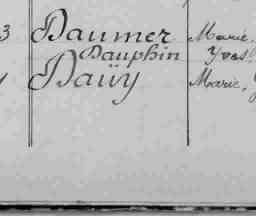 3 Daumer Marie.
Dauphin Yves
Daüy Marie,